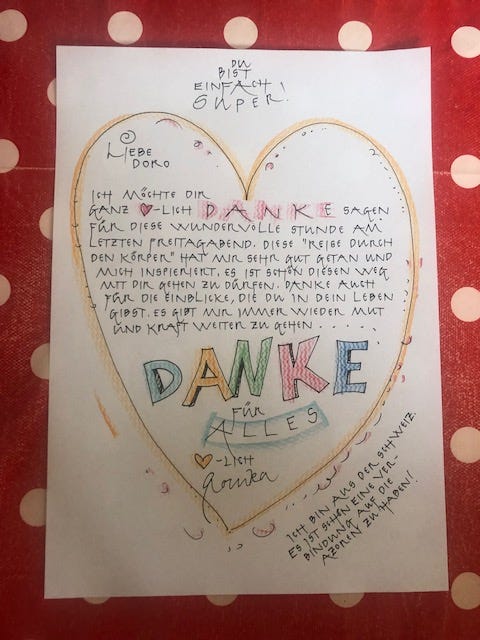 DU
BIST
EINFACH
SUPER!
LIEBE
DORO
ICH MÖCHTE DIR
GANZ ♥-LICH DANKE SAGEN
FÜR DIESE WUNDERVOLLE STUNDE AM
LETZTEN FREITAGABEND. DIESE "REISE DURCH
DEN KÖRPER" HAT MIR SEHR GUT GETAN UND
MICH INSPIRIERT. ES IST SCHÖN DIESEN WEG
MIT DIR GEHEN ZU DÜRFEN. DANKE AUCH
FÜR DIE EINBLICKE, DIE DU IN DEIN LEBEN
GIBST. ES GIBT MIR IMMER WIEDER MUT
UND KRAFT WEITER ZU GEHEN . . . . . .
DANKE
FÜR
ALLES
♥-LICH
ICH BIN AUS DER SCHWEIZ.
ES IST SCHÖN EINE VER-
BINDUNG AUF DIE
AZOREN ZU HABEN!